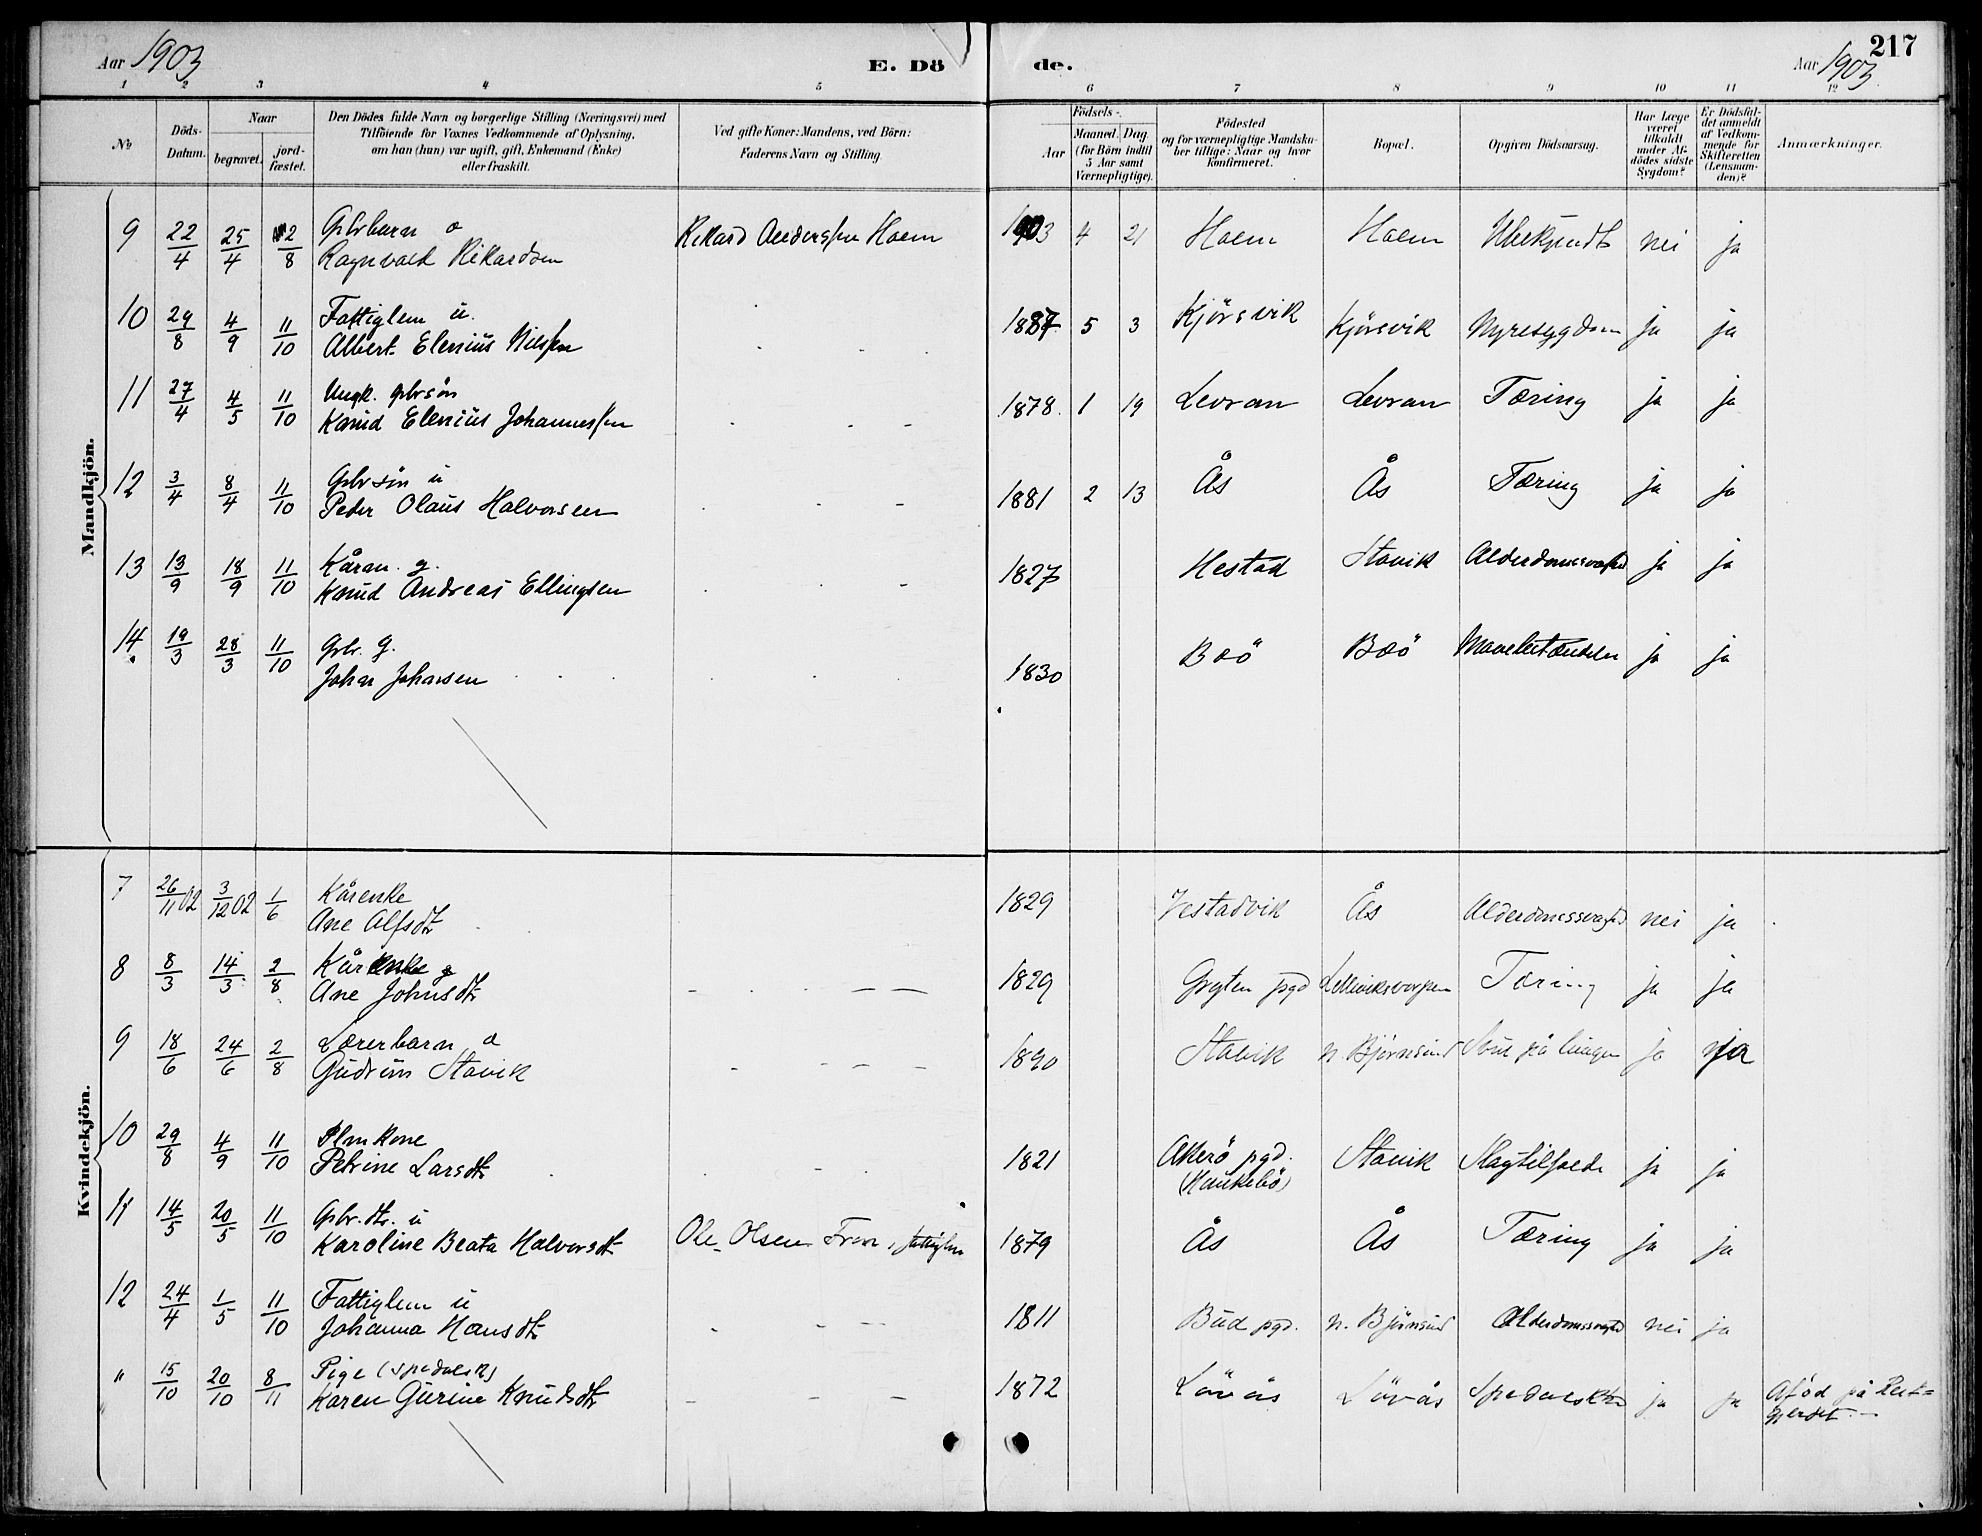 Aar 1903
E. Dö
de.
Aar 1903
217
1 2 3 4 5 6 7 8 9 10 11 12
No
Döds-Datum.
Naar
begravet.
jord-fæstet.
Den Dödes fulde Navn og borgerlige Stilling (Næringsvei) med
Tilföiende for Voxnes Vedkommende af Oplysning,
om han (hun) var ugift, gift, Enkemand (Enke)
eller fraskilt.
Ved gifte Koner: Mandens, ved Börn:
Faderens Navn og Stilling.
Födsels-
Aar
Maaned. Dag
(for Börn indtil
5 Aar samt
Værnepligtige).
Födested
og for værnepligtige Mandska-
ber tillige: Naar og hvor
Konfirmeret.
Bopæl.
Opgiven Dödsaarsag.
Har Læge
været
tilkaldt
under Af-
dödes sidste
Sygdom?
Er Dödsfal-
det anmeldt
af Vedkom-
mende for
Skifteretten
(Lensman-
den)?
Anmærkninger.
Mandkjön.
9 22/4 25/4 2/8 Gbrbarn a
Ragnvald Rikardsen Rikard Anderssen Haem 1903 4 21 Haem Haem Ubekjendt nei ja
10 29/8 4/9 11/10 Fattiglem u.
Albert Elenius Nilssen 1887 5 3 Kjörsvik Kjörsvik Nyresygdom ja ja
11 27/4 4/5 11/10 Ungk. gbrsön
Knud Elenius Johannessen 1878. 1 19 Levran Levran Tæring ja ja
12 3/4 8/4 11/10 Gbrsön u
Peder Olaus Halvorsen 1881 2 13 Ås Ås Tæring ja ja
13 13/9 18/9 11/10 Kårm. g.
Knud Andreas Ellingsen 1827 Hestad Stavik Alderdomssvaghed ja ja
14. 19/3 28/3 11/10 Gbr. g.
Johan Johansen 1830 Boö Boö Mavebetændelse ja ja
Kvindekjön.
7 26/11 02 3/12 02 1/6 Kårenke
Ane Alfsdtr 1829 Vestadvik Ås Alderdomssvaghed nei ja
8 8/3 14/3 2/8 Kårenke g
Ane Johnsdtr 1829 Grytten pgd Tæring ja ja
9 18/6 24/6 2/8 Lærerbarn a
Gudrun Stavik 1890 Stavik n. Björnsund ja ja
10 29/8 4/9 11/10 Flmkone
Petrine Larsdtr 1821 Akerö pgd.
(Haukebö) Stavik Slagtilfælde ja ja
11 14/5 20/5 11/10 Gbr. dtr. u
Karoline Beata Halvorsdtr Ole Olsen, fattiglem 1879 Ås Ås Tæring ja ja
12 24/4 1/5 11/10 Fattiglem u
Johanna Hansdtr 1811 Bud pgd. n. Björnsund Alderdomssvaghed nei ja
" 15/10 20/10 8/11 Pige (spedalsk)
Karen Gurine Knudsdtr 1872 Lövås Lövås Spedalskhed ja ja Aföd på Rekt-
gjerdet.